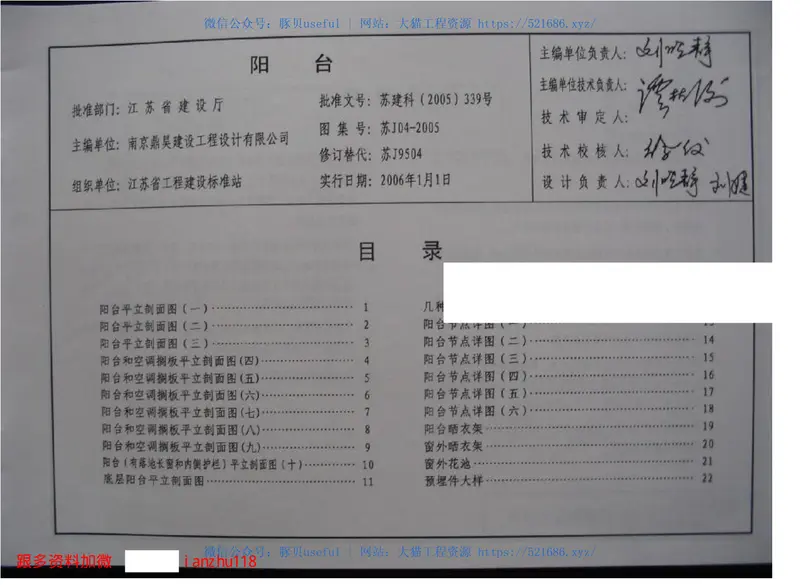 微信公众号：豚贝useful | 网站：大猫工程资源 https://521686.xyz/
阳 台
批准部门：江苏省建设厅
主编单位：南京鼎昊建设工程设计有限公司
组织单位：江苏省工程建设标准站
批准文号：苏建科(2005)339号
图集号：苏J04-2005
修订替代：苏J9504
实行日期：2006年1月1日
主编单位负责人：
主编单位技术负责人：
技术审定人：
技术校核人：
设计负责人：
目 录
阳台平立剖面图(一) 1
阳台平立剖面图(二) 2
阳台平立剖面图(三) 3
阳台和空调搁板平立剖面图(四) 4
阳台和空调搁板平立剖面图(五) 5
阳台和空调搁板平立剖面图(六) 6
阳台和空调搁板平立剖面图(七) 7
阳台和空调搁板平立剖面图(八) 8
阳台和空调搁板平立剖面图(九) 9
阳台(有落地长窗和内侧护栏)平立剖面图(十) 10
底层阳台平立剖面图 11
几种
阳台节点详图(一) 13
阳台节点详图(二) 14
阳台节点详图(三) 15
阳台节点详图(四) 16
阳台节点详图(五) 17
阳台节点详图(六) 18
阳台晒衣架 19
窗外晒衣架 20
窗外花池 21
预埋件大样 22
微信公众号：豚贝useful | 网站：大猫工程资源 https://521686.xyz/
跟多资料加微 ianzhu118